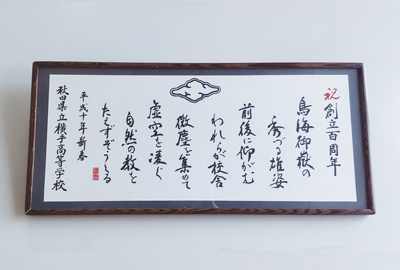 祝 創立百周年
鳥海御嶽の
秀づる雄姿
前後に仰がむ
われらが校舎
微塵を集めて
虚空を凌ぐ
自然の教を
たえずぞうくる
平成十年新春
秋田県立横手高等学校